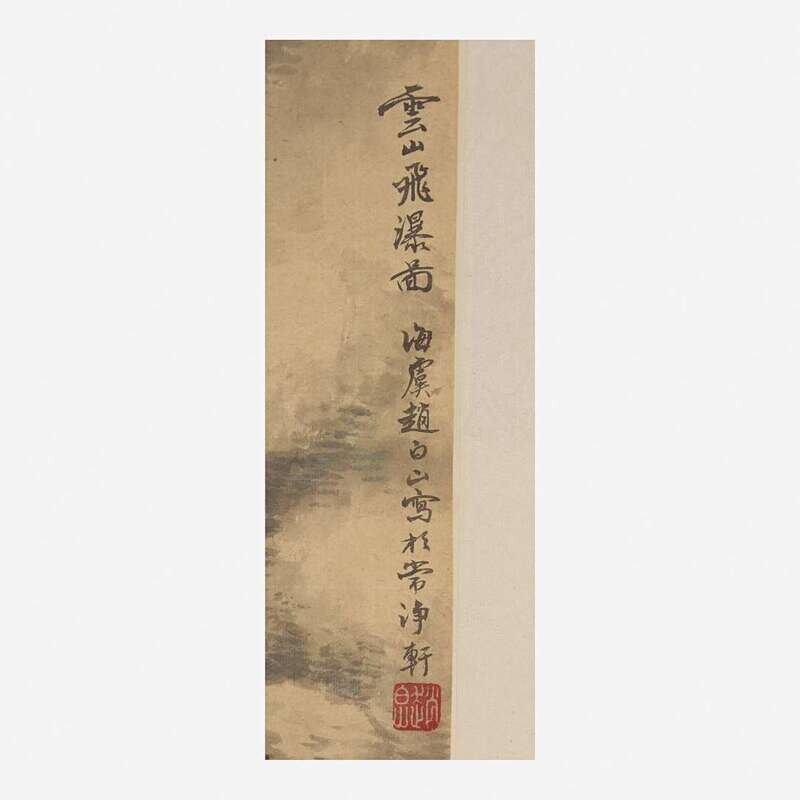 雲山飛瀑啚 海虞趙白山寫於常淨軒